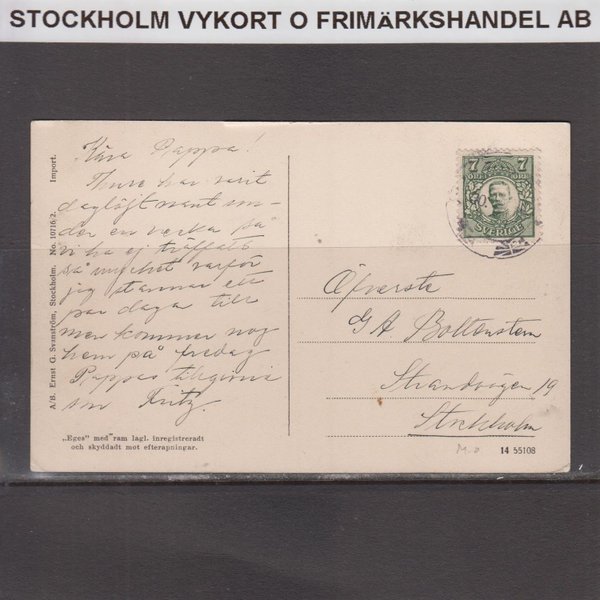 STOCKHOLM VYKORT O FRIMÄRKSHANDEL AB
Kära Pappa!
Thure har varit
dagligt under en vecka på
vi ha ej träffats
så mycket varför
jag stannar ett
par dagar till
men kommer nog
hem på fredag
Pappas tillgivne
son Fritz.
A/B. Ernst G. Svanström, Stockholm. No. 10716/2. Import.
„Eges" med ram lagl. inregistreradt
och skyddadt mot efterapningar.
7 7
ÖRE ÖRE
SVERIGE
Öfverste
G A Boltenstern
Strandvägen 19
Stockholm
M.ö
14 55108